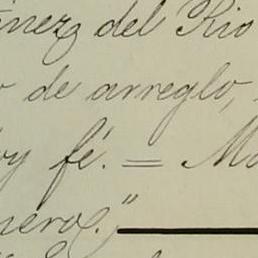 tínez del Rio
o de arreglo,
oy fé. = Ma
nero."